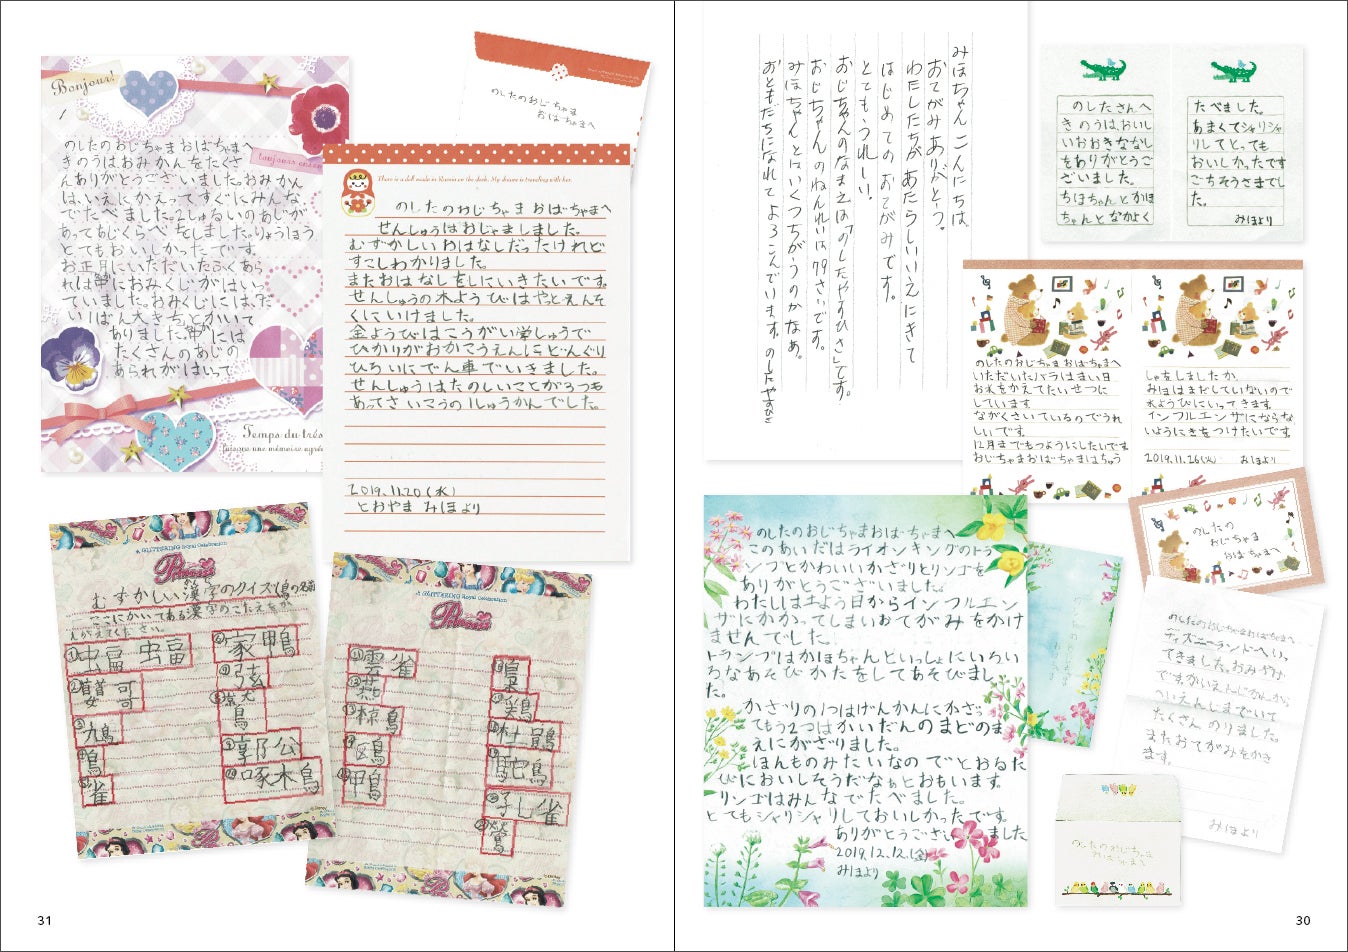 みほちゃんこんにちは、
おてがみありがとう。
わたしたちが あたらしいいえにきて
はじめてのおてがみです。
とてもうれしい。
おじちゃんのなまえは「のしたやすひさ」です。
おじちゃんのねんれいは79さいです。
みほちゃんとはいくつちがうのかなあ。
おともだちになれてよろこんでいます。のしたやすひさ
のしたさんへ
きのうは、おいし
いおおきななし
をありがとうご
ざいました。
ちほちゃんとかほ
ちゃんとなかよく
たべました。
あまくてシャリシャ
リしてとっても
おいしかったです
ごちそうさまでし
た。
みほより
のしたのおじちゃまおばちゃまへ
いただいたバラはまい日
お水をかえてたいせつに
しています。
ながくさいているのでうれ
しいです。
12月までもつようにしたいです
おじちゃまおばちゃまはちゅう
しゃをしましたか。
みほはまだしていないので
水ようびにいってきます。
インフルエンザにならな
いようにきをつけたいです。
2019.11.26(火) みほより
のしたの
おじちゃま
おばちゃまへ
のしたのおじちゃまおばちゃまへ
このあいだはライオンキングのトラ
ンプとかわいいかざりとリンゴを
ありがとうございました。
わたしは土よう日からインフルエン
ザにかかってしまいおてがみをかけ
ませんでした。
トランプはかほちゃんといっしょにいろい
ろなあそびかたをしてあそびまし
た。
かざりの1つはげんかんにかざっ
てもう2つはかいだんのまどのま
えにかざりました。
ほんものみたいなのでとおるた
びにおいしそうだなぁとおもいます。
リンゴはみんなでたべました。
とてもシャリシャリしておいしかったです。
ありがとうございました
2019.12.12.(金)
みほより
のしたのおじちゃまおばちゃまへ
ディズニーランドへいっ
てきました。おみやげ
です。
たくさんのりました。
またおてがみをかき
ます。
みほより
のしたのおじちゃま
おばちゃまへ
30
Bonjour!
toujours encore
のしたのおじちゃまおばちゃまへ
きのうはおみかんをたくさ
んありがとうございました。おみかん
は、いえにかえってすぐにみんな
でたべました。2しゅるいのあじが
あってあじくらべをしました。りょうほう
とてもおいしかったです。
お正月にいただいたふくあら
れは中におみくじがはいっ
ていました。おみくじには、だ
い1ばん大きちとかいて
ありました。中には
たくさんのあじの
あられがはいって
Temps du très
presque une mémoire agréa
のしたのおじちゃま
おばちゃまへ
There is a doll made in Russia on the desk. My dream is traveling with her.
のしたのおじちゃま おばちゃまへ
せんしゅうはおじゃましました。
むずかしいおはなしだったけれど
すこしわかりました。
またおはなしをしにいきたいです。
せんしゅうの木ようびはやとえんそ
くにいけました。
金ようびはこうがい学しゅうで
ひかりがおかこうえんにどんぐり
ひろいにでん車でいきました。
せんしゅうはたのしいことが3つも
あってさいこうの1しゅうかんでした。
2019.11.20(水)
とおやま みほより
A GLITTERING Royal Celebration
Princess
むずかしい漢字のクイズ(鳥の名前)
ここにかいてある漢字のこたえをか
んがえてください
①蝙蝠
②鸚哥
③九鳥
④鳥
⑤雀
⑥家鴨
⑨郭公
⑩啄木鳥
A GLITTERING Royal Celebration
Princess
⑪雲雀
⑫燕
杜鵑
鴕鳥
鶯
31